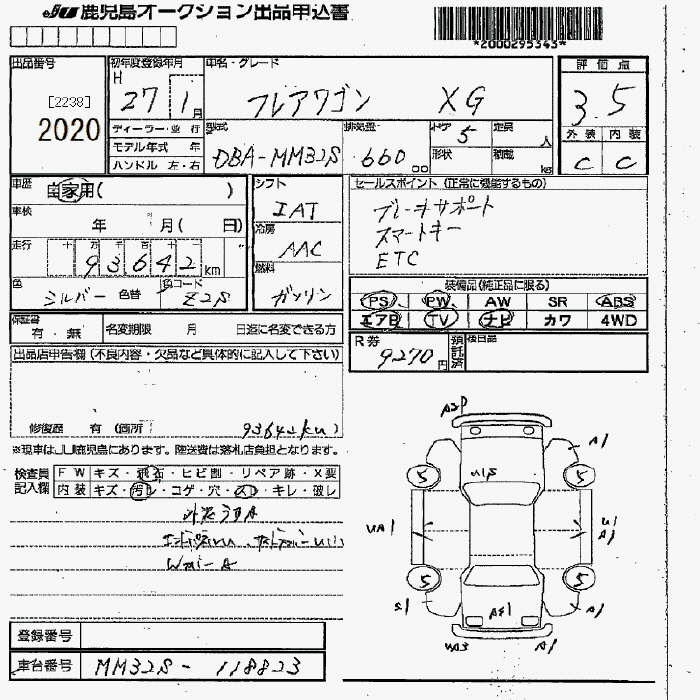 JU 鹿児島オークション出品申込書
*2000295343*
出品番号
[2238]
2020
初年度登録年月
H 27 1月
車名・グレード
フレアワゴン XG
評価点
3.5
ディーラー・並行
モデル年式 年
ハンドル 左・右
型式
DBA-MM32S
排気量
660 cc
ドア 5
定員 人
形状
積載 kg
外装 内装
C C
車歴 自家用( )
車検 年 月( 日)
走行 十万千百十
93642 km
色 シルバー 色替 色コード Z2S
シフト
IAT
冷房
AAC
燃料
ガソリン
セールスポイント(正常に機能するもの)
ブレーキサポート
スマートキー
ETC
装備品(純正品に限る)
PS PW AW SR ABS
エアB TV ナビ カワ 4WD
保証書 有・無
名変期限 月 日迄に名変できる方
R券 9270円
預託済
後日品
出品店申告欄(不良内容・欠品など具体的に記入して下さい)
修復歴 有(箇所 93642km)
※現車はJU鹿児島にあります。陸送費は落札店負担となります。
検査員記入欄
FW キズ・飛石・ヒビ割・リペア跡・X要
内装 キズ・汚レ・コゲ・穴・スレ・キレ・破レ
A2P
A1
5
5
U1S
UA1
U1
A1
5
5
S1
A1
A1
登録番号
車台番号 MM32S-118823